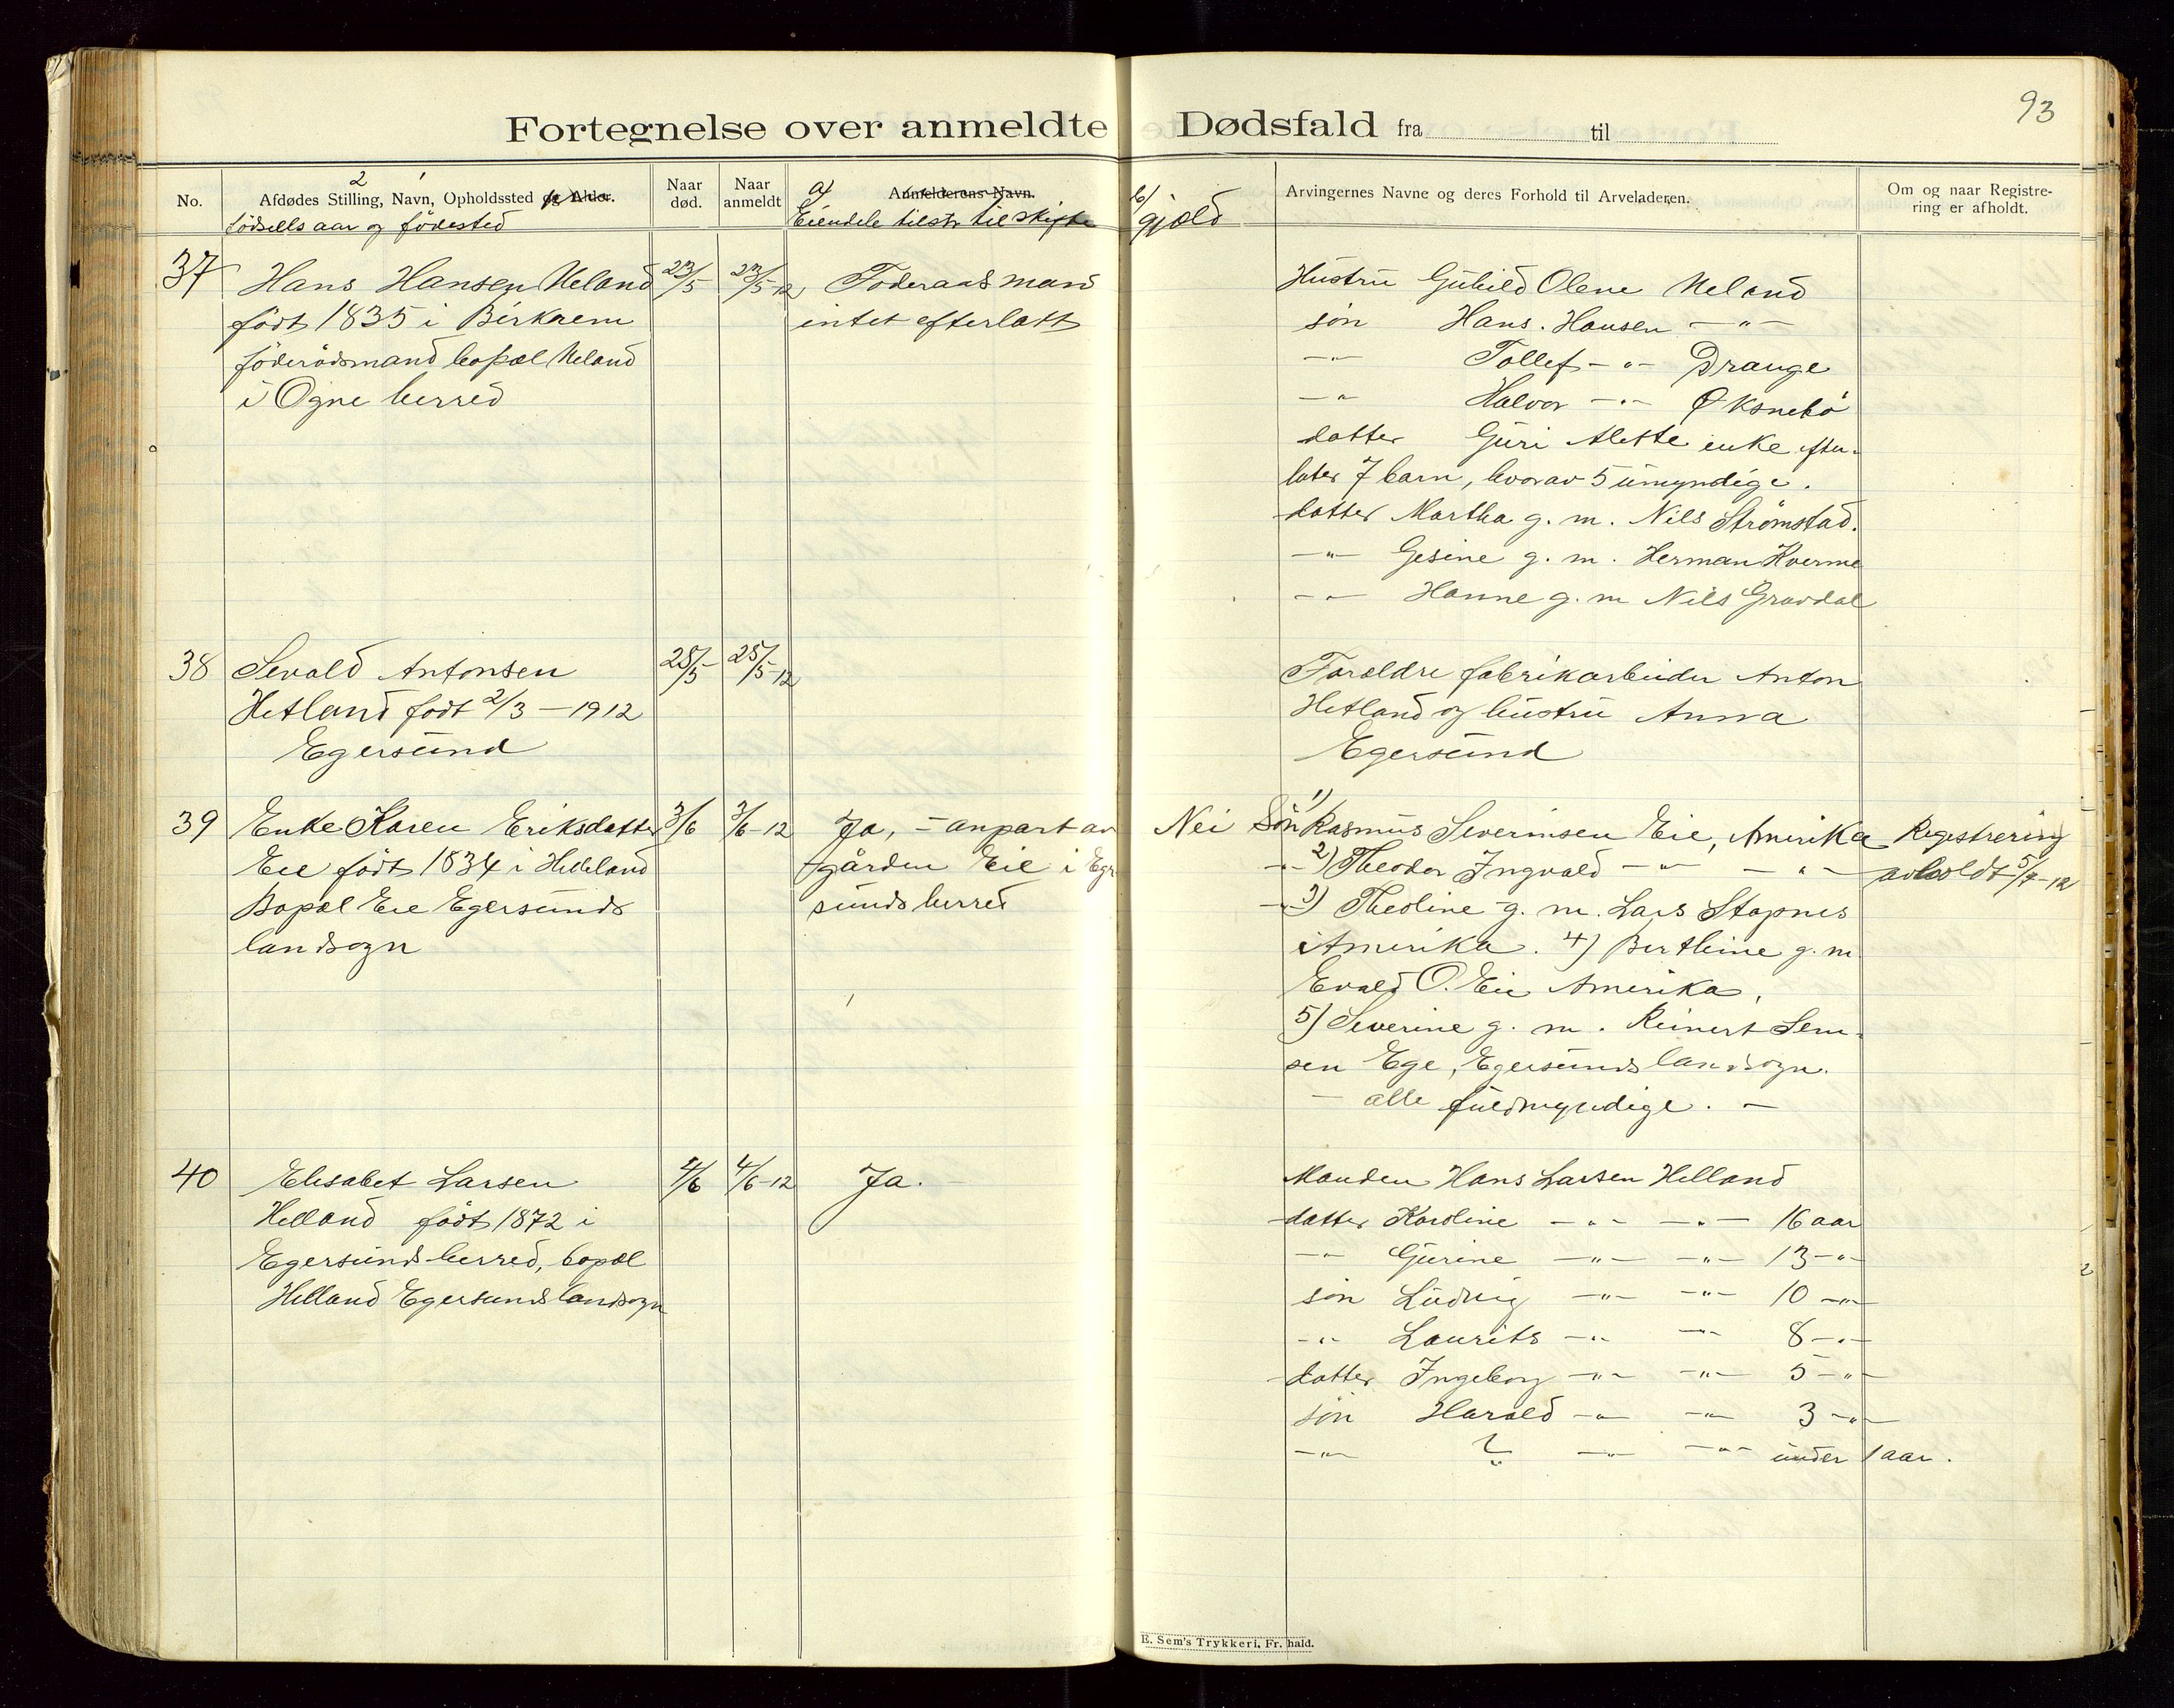 93
Fortegnelse over anmeldte Dødsfald fra til
No.
2 1
Afdødes Stilling, Navn, Opholdssted og Alder.
födselsaar og födested
Naar død.
Naar anmeldt
a) Anmelderens Navn.
Eiendele tilstr til skifte
b) gjæld
Arvingernes Navne og deres Forhold til Arveladeren.
Om og naar Registrering er afholdt.
37 Hans Hansen Ueland 23/5 23/5-12 Föderaadsmand
född 1835 i Birkrem intet efterlatt
föderådsmand bopæl Ueland
i Ogne herred
Hustru Guhild Olene Ueland
sön Hans. Hansen -"-
-"- Tollef -"- Drange
-"- Halvor -"- Øksnebö
datter Guri Alette enke efter-
later 7 barn, hvorav 5 umyndige.
datter Martha g. m. Nils Strömstad.
-"- Gesine g. m. Herman Kverme
-"- Hanne g. m Nils Gravdal
38 Sevald Antonsen 25/5 25/5-12
Hetland födt 2/3-1912
Egersund
Forældre fabrikarbeider Anton
Hetland og hustru Anna
Egersund
39 Enke Karen Eriksdatter 3/6 3/6-12 Ja, - anpart av Nei
Eie födt 1834 i Helleland gården Eie i Eger
Bopæl Eie Egersunds sunds herred
landsogn
Sön 1) Rasmus Severinsen Eie, Amerika Registrering
-"- 2) Theodor Ingvald -"- -"- avholdt 5/7-12
-"- 3) Theoline g. m. Lars Stapnes
i Amerika. 4) Berthine g. m
Evald O. Eie Amerika,
5) Severine g. m. Reinert Sem-
sen Ege, Egersunds landsogn.
- alle fuldmyndige. -
40 Elisabet Larsen 4/6 4/6-12 Ja.
Helland födt 1872 i
Egersunds herred, bopæl
Helland Egersunds landsogn
Manden Hans Larsen Helland
datter Karoline -"- -"- 16 aar
-"- Gurine -"- -"- 13 -"-
sön Ludvig -"- -"- 10 -"-
-"- Laurits -"- -"- 8 -"-
datter Ingeborg -"- -"- 5 -"-
sön Harald -"- -"- 3 -"-
-"- ? -"- -"- under 1 aar.
E. Sem's Trykkeri, Fr. hald.